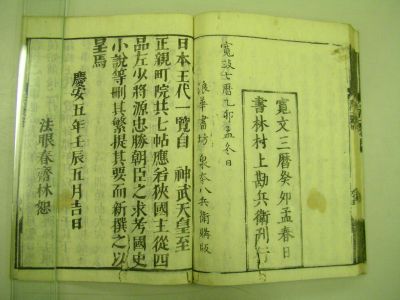 寛文三暦癸卯孟春日
書林村上勘兵衛刊行
寛政七暦乙卯孟冬日
浪華書坊 泉本八兵衛購版
日本王代一覽自 神武天皇至
正親町院共七帖應若狹國主從四
品左少將源忠勝朝臣之求考國史
小說等刪其繁提其要而新撰之以
呈焉
慶安五年壬辰五月吉日
法眼春齋林恕